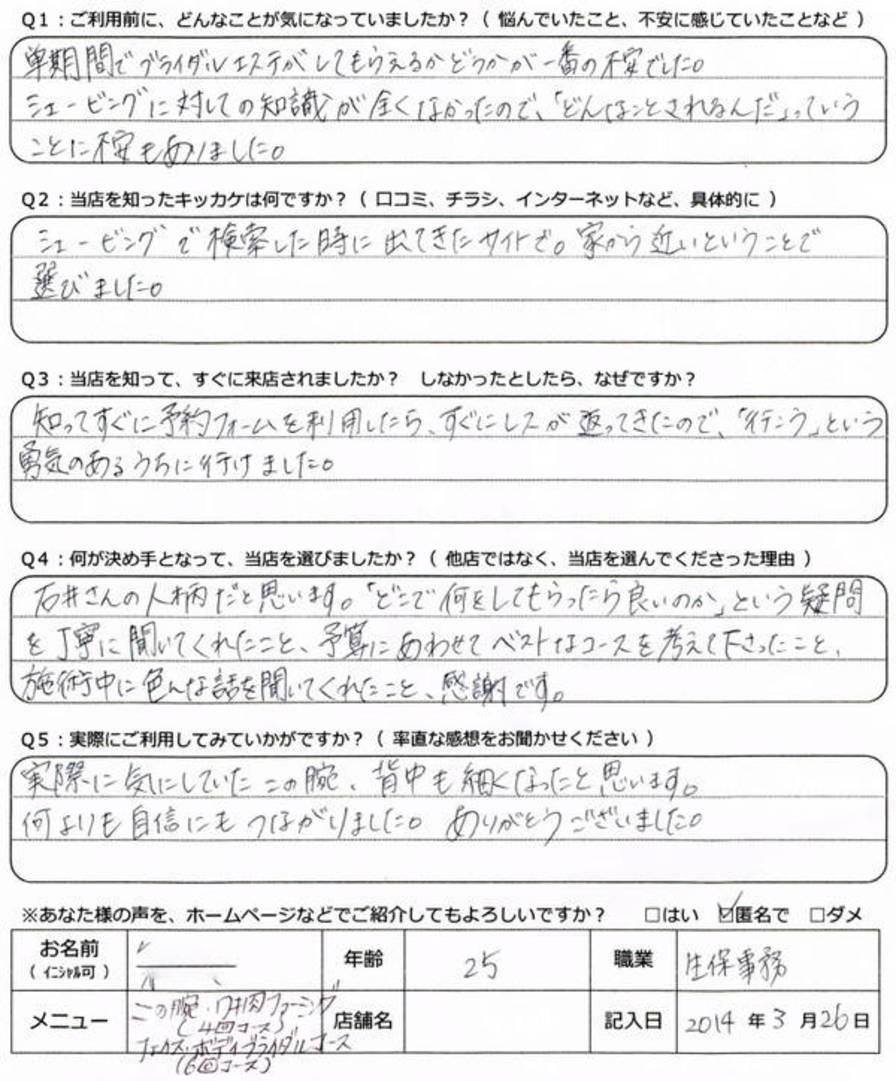 Q1：ご利用前に、どんなことが気になっていましたか？（ 悩んでいたこと、不安に感じていたことなど ）
単期間でブライダルエステがしてもらえるかどうかが一番の不安でした。
シェービングに対しての知識が全くなかったので、「どんなことされるんだ」っていう
ことに不安もありました。
Q2：当店を知ったキッカケは何ですか？（ 口コミ、チラシ、インターネットなど、具体的に ）
シェービングで検索した時に出てきたサイトで。家から近いということで
選びました。
Q3：当店を知って、すぐに来店されましたか？　しなかったとしたら、なぜですか？
知ってすぐに予約フォームを利用したら、すぐにレスが返ってきたので、「行こう」という
勇気のあるうちに行けました。
Q4：何が決め手となって、当店を選びましたか？（ 他店ではなく、当店を選んでくださった理由 ）
石井さんの人柄だと思います。「どこで何をしてもらったら良いのか」という疑問
を丁寧に聞いてくれたこと、予算にあわせてベストなコースを考えて下さったこと、
施術中に色んな話を聞いてくれたこと、感謝です。
Q5：実際にご利用してみていかがですか？（ 率直な感想をお聞かせください ）
実際に気にしていた二の腕、背中も細くなったと思います。
何よりも自信にもつながりました。ありがとうございました。
※あなた様の声を、ホームページなどでご紹介してもよろしいですか？　□はい　☑匿名で　□ダメ
お名前
（ ｲﾆｼｬﾙ可 ）
年齢 25 職業 生保事務
メニュー
二の腕・ワキ肉ファーミング
（4回コース）
フェイス・ボディブライダルコース
（6回コース）
店舗名
記入日 2014 年 3 月 26 日